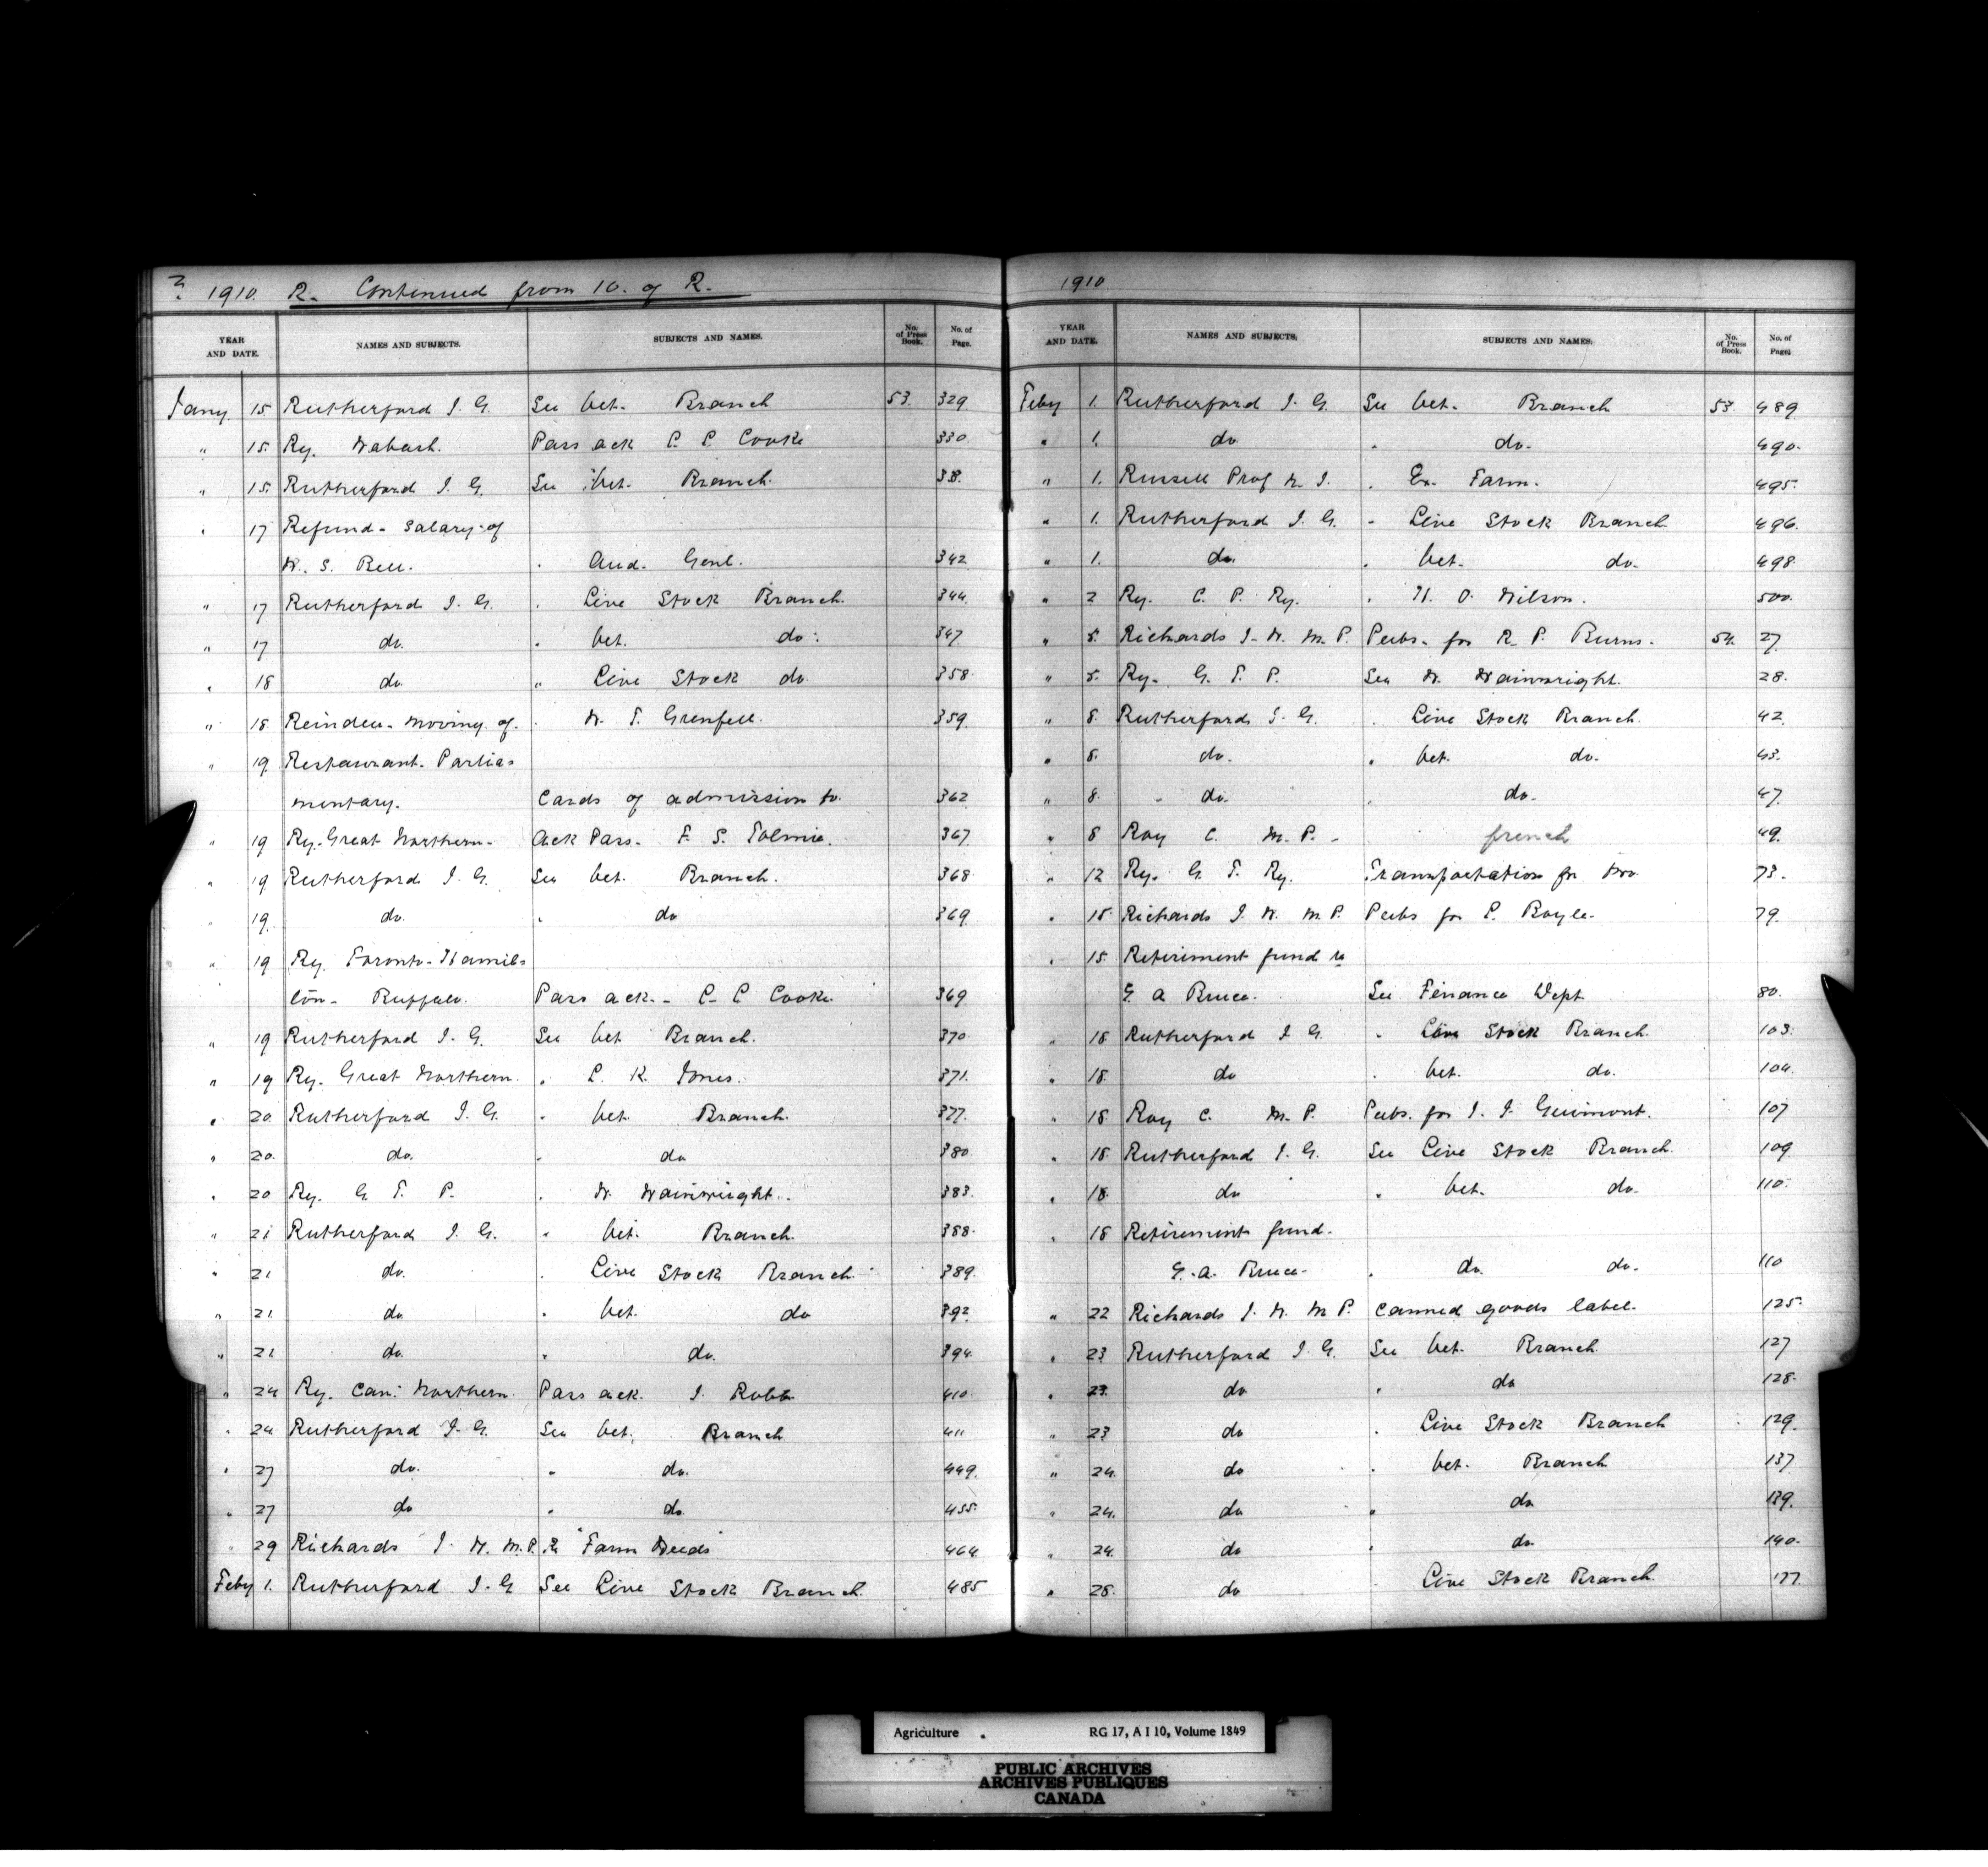 1910. R. Continued from 10. of R.
YEAR AND DATE. NAMES AND SUBJECTS. SUBJECTS AND NAMES. No. of Press Book. No. of Page.
Jany 15 Rutherford J. G. See Vet. Branch 53. 329.
" 15. Ry. Wabash. Pass ack C. C. Cooke 330.
" 15. Rutherford J. G. See Vet. Branch.
" 17 Refund - Salary of
W. S. Bell. " Aud. Genl. 342
" 17 Rutherford J. G. " Live Stock Branch. 344.
" 17 do. " Vet. do. 347.
" 18 do. " Live Stock do. 358.
" 18 Reindeer - moving of. " W. T. Grenfell. 359.
" 19. Restaurant. Parlia-
mentary. Cards of admission to. 362
" 19 Ry. Great Northern - Ack Pass - F. S. Tolmie. 367.
" 19 Rutherford J. G. See Vet. Branch. 368.
" 19. do. " do 369.
" 19 Ry. Toronto - Hamil-
ton - Buffalo. Pass ack. - C. C. Cooke. 369.
" 19 Rutherford J. G. See Vet Branch. 370.
" 19 Ry. Great Northern. " Jones. 371.
" 20. Rutherford J. G. " Vet. Branch. 377.
" 20. do. " do 380
" 20 Ry. G. T. P. " W. Wainwright. 383.
" 21 Rutherford J. G. " Vet. Branch. 388.
" 21 do. " Live Stock Branch. 389.
" 21. do. " Vet. do 392.
" 21. do. " do. 394.
" 24 Ry. Can. Northern. Pass ack. J. Robb 410.
" 24 Rutherford J. G. See Vet. Branch 411
" 27 do. " do. 449.
" 27 do " do. 455.
" 29 Richards J. W. M.P. Re "Farm Weeds" 464.
Feby 1. Rutherford J. G See Live Stock Branch. 485
1910
YEAR AND DATE. NAMES AND SUBJECTS. SUBJECTS AND NAMES. No. of Press Book. No. of Page.
Feby 1. Rutherford J. G. See Vet. Branch 53. 489
" 1. do " do. 490.
" 1. Russell Prof W. J. " Ex. Farm. 495.
" 1. Rutherford J. G. " Live Stock Branch 496.
" 1. do. " Vet. do. 498.
" 2 Ry. C. P. Ry. " Wilson. 500.
" 5. Richards J. W. M.P. Pubs. for R. P. Burns. 54. 27.
" 5. Ry. G. T. P. See W. Wainwright. 28.
" 8. Rutherford J. G. " Live Stock Branch. 42.
" 8. do. " Vet. do. 43.
" 8. do. " do. 47.
" 8 Roy C. M.P. - french 49.
" 12 Ry. G. T. Ry. Transportation for 73.
" 15 Richards J. W. M.P. Pubs for P. Boyle. 79.
" 15. Retirement fund re
G. A Bruce. See Finance Dept 80.
" 18 Rutherford J G. " Live Stock Branch. 103.
" 18. do " Vet. do. 104.
" 18 Roy C. M.P. Pubs. for J. J. Guimont. 107
" 18. Rutherford J. G. See Live Stock Branch. 109.
" 18. do " Vet. do. 110.
" 18 Retirement fund.
G. A. Bruce - " do. do. 110
" 22 Richards J. W. M P. Canned goods label. 125.
" 23 Rutherford J. G. See Vet. Branch. 127
" 23. do " do 128.
" 23 do " Live Stock Branch 129.
" 24. do " Vet. Branch 137.
" 24. do " do. 139.
" 24. do " do. 140.
" 28. do Live Stock Branch. 177.
Agriculture RG 17, A I 10, Volume 1849
PUBLIC ARCHIVES
ARCHIVES PUBLIQUES
CANADA